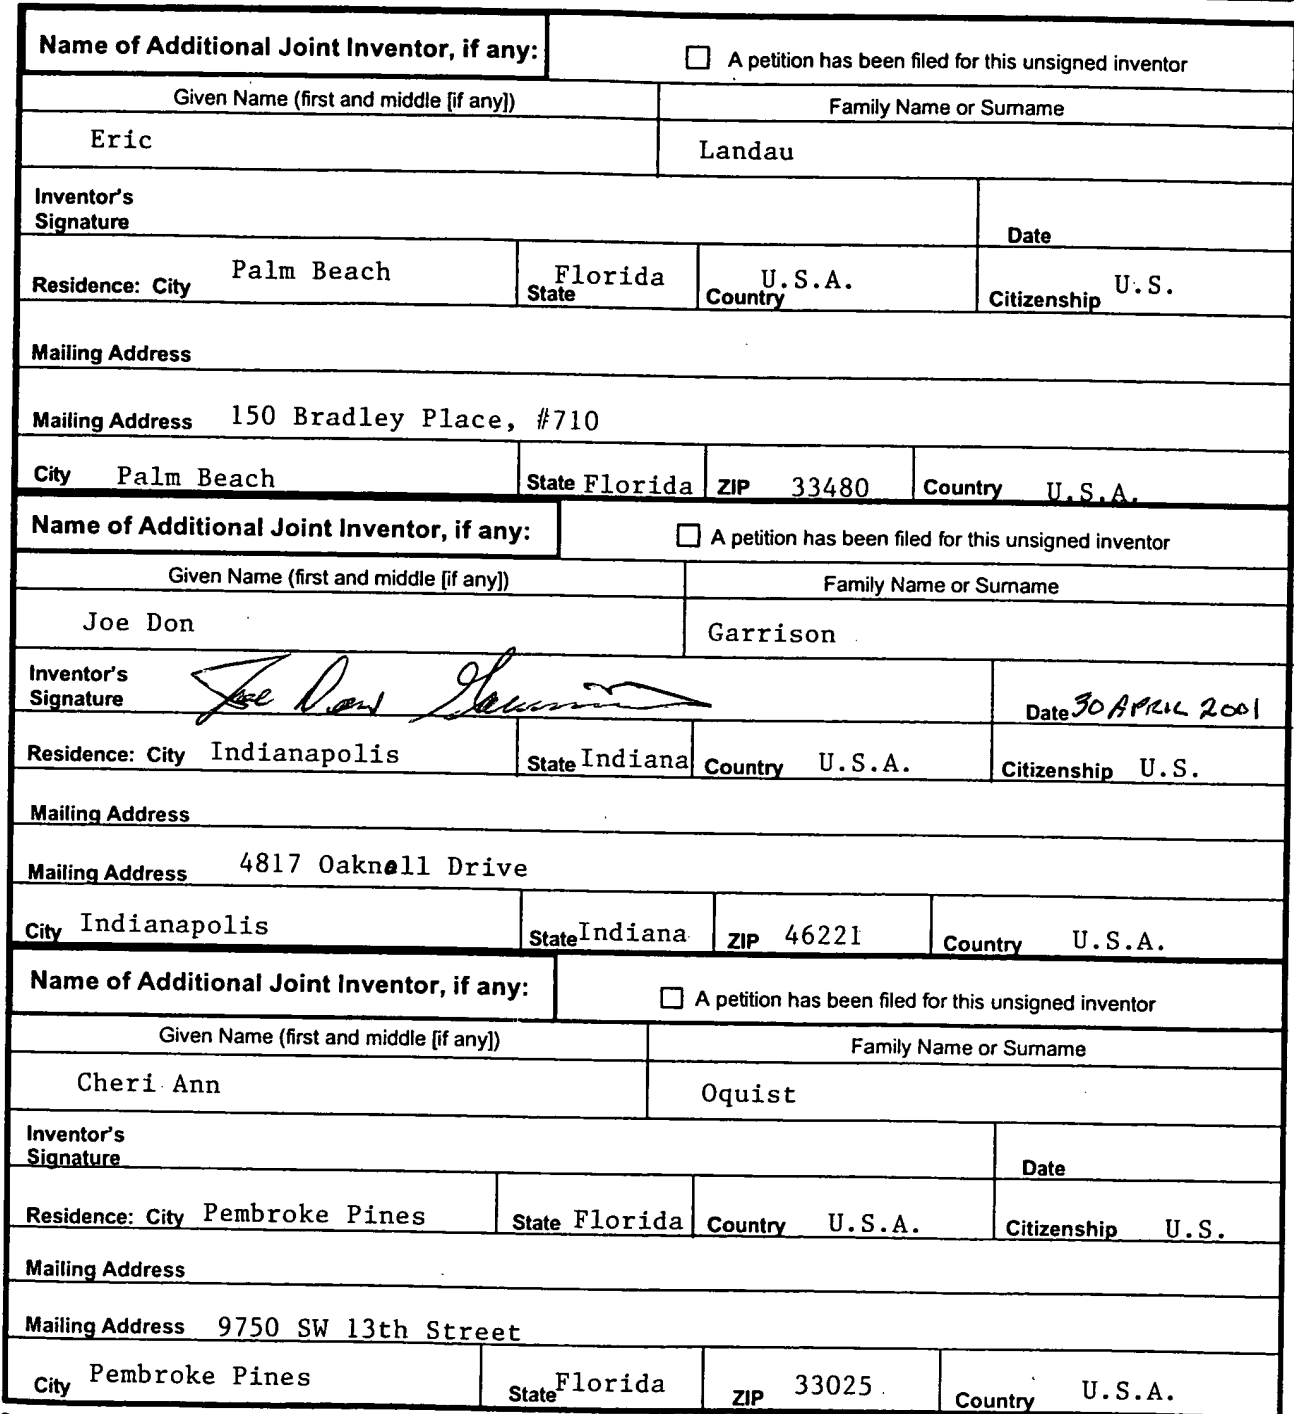 Name of Additional Joint Inventor, if any: ☐ A petition has been filed for this unsigned inventor
Given Name (first and middle [if any]) Family Name or Surname
Eric Landau
Inventor's
Signature Date
Residence: City Palm Beach State Florida Country U.S.A. Citizenship U.S.
Mailing Address
Mailing Address 150 Bradley Place, #710
City Palm Beach State Florida ZIP 33480 Country U.S.A.
Name of Additional Joint Inventor, if any: ☐ A petition has been filed for this unsigned inventor
Given Name (first and middle [if any]) Family Name or Surname
Joe Don Garrison
Inventor's
Signature Joe Don Garrison Date 30 APRIL 2001
Residence: City Indianapolis State Indiana Country U.S.A. Citizenship U.S.
Mailing Address
Mailing Address 4817 Oaknoll Drive
City Indianapolis State Indiana ZIP 46221 Country U.S.A.
Name of Additional Joint Inventor, if any: ☐ A petition has been filed for this unsigned inventor
Given Name (first and middle [if any]) Family Name or Surname
Cheri Ann Oquist
Inventor's
Signature Date
Residence: City Pembroke Pines State Florida Country U.S.A. Citizenship U.S.
Mailing Address
Mailing Address 9750 SW 13th Street
City Pembroke Pines State Florida ZIP 33025 Country U.S.A.